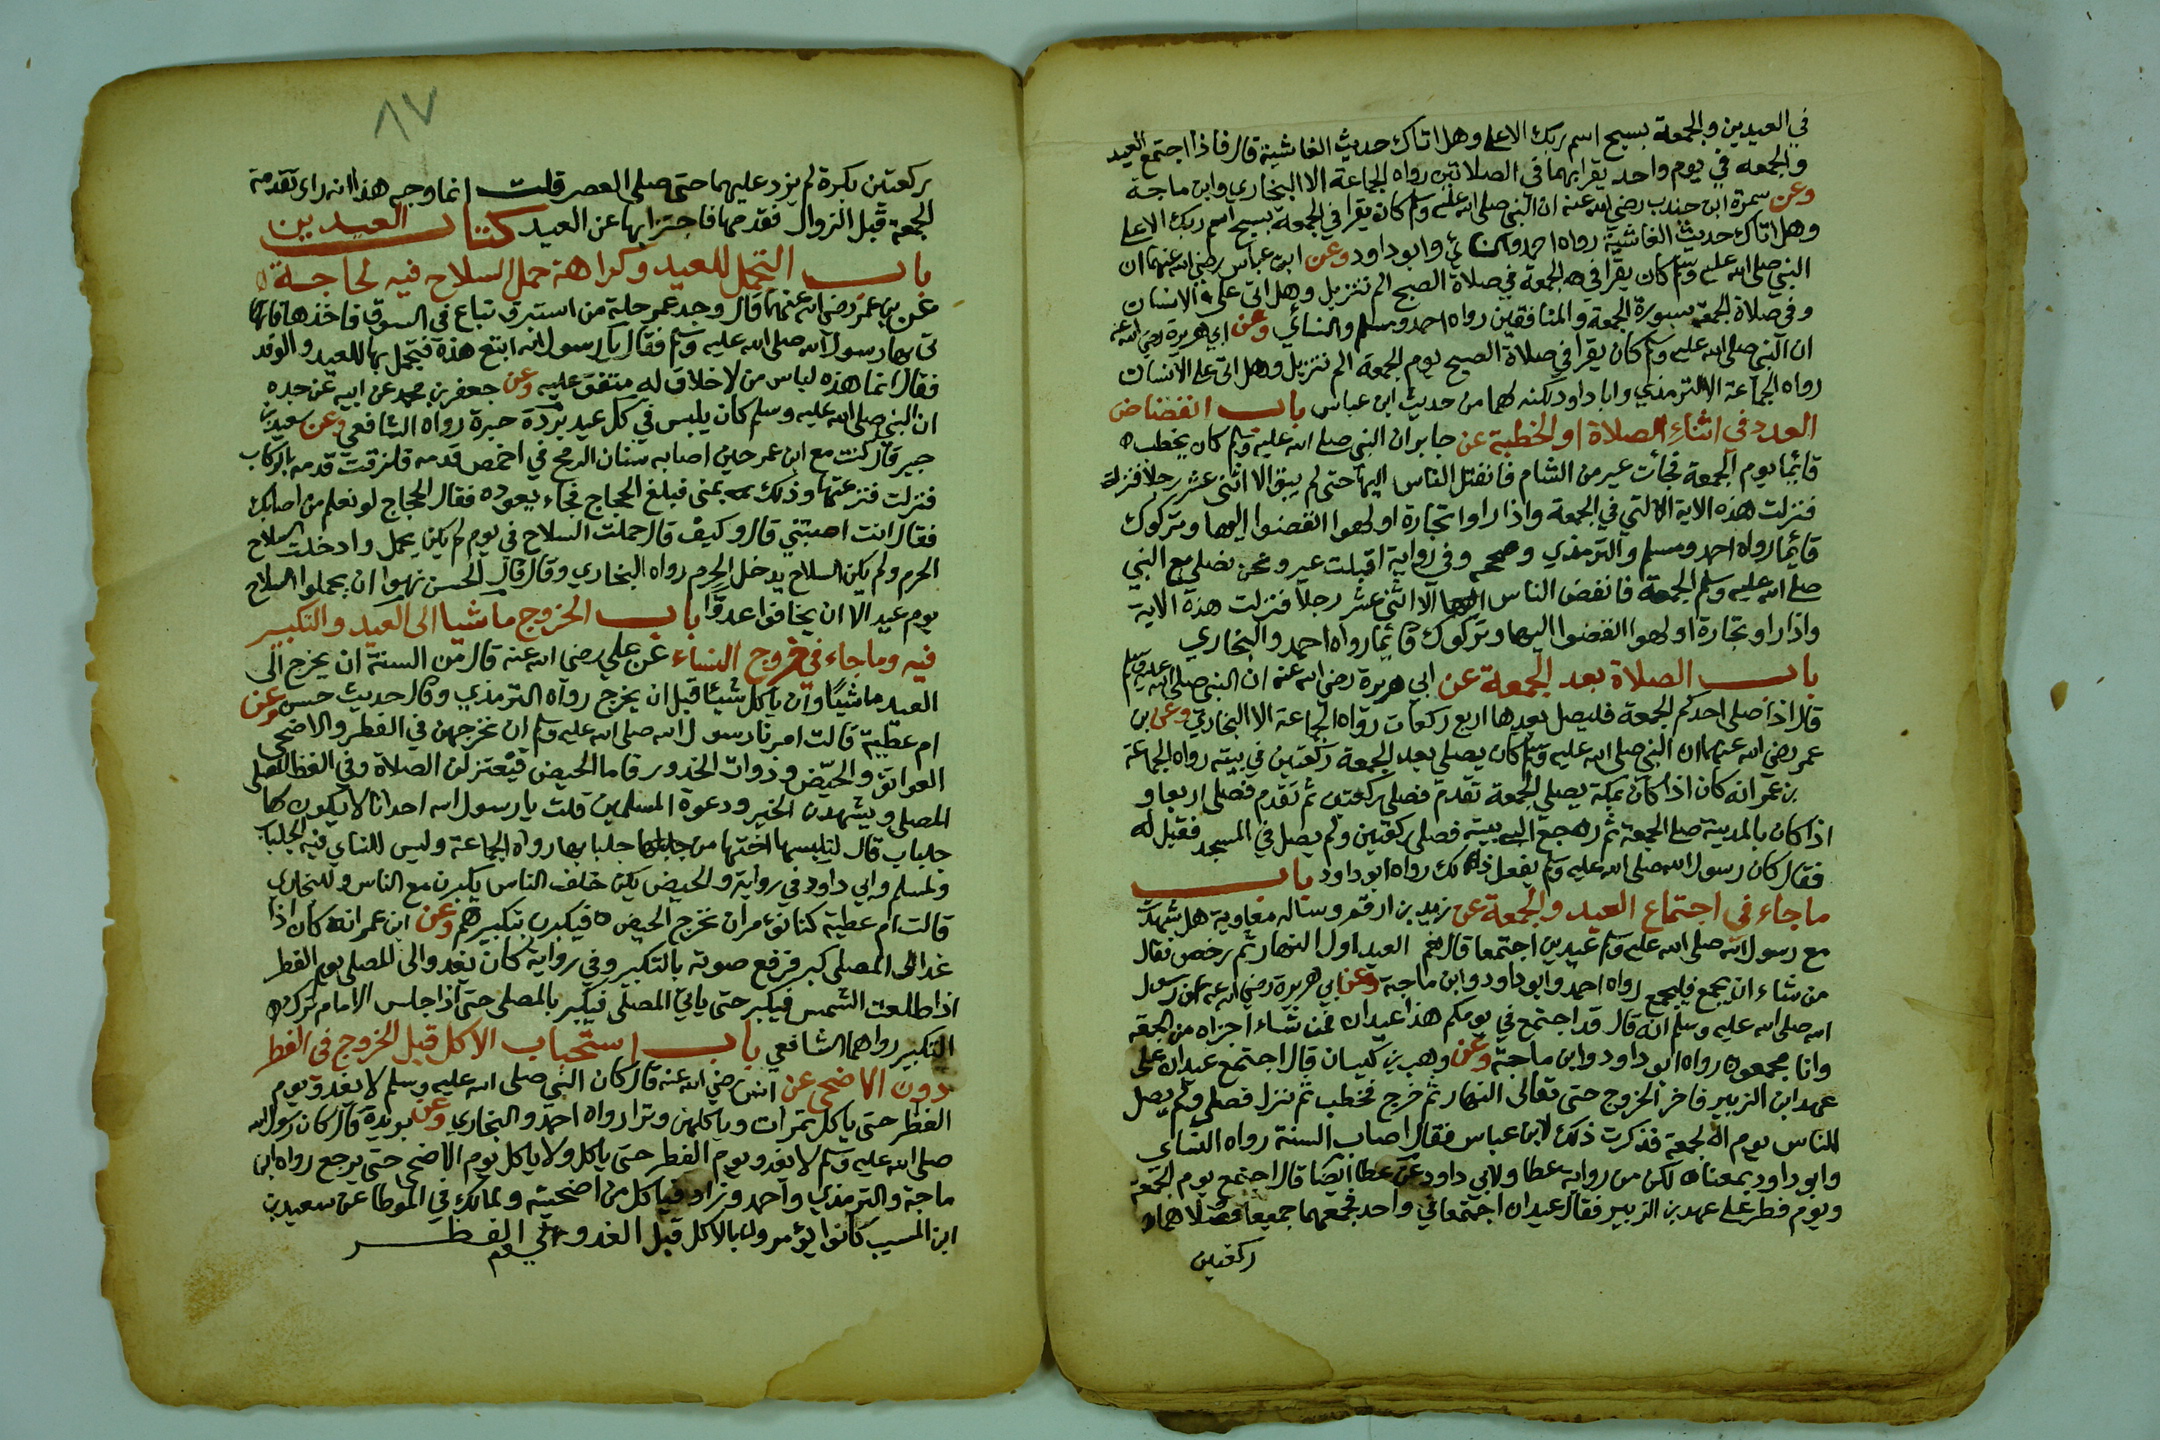 في العيدين والجمعة بسبح اسم ربك الاعلى وهل اتاك حديث الغاشية قال فاذا اجتمع العيد
والجمعه في يوم واحد يقرا بهما في الصلاتين رواه الجماعة الا البخاري وابن ماجة
وعن سمرة ابن جندب رضي الله عنه ان النبي صلى الله عليه وسلم كان يقرا في الجمعة بسبح اسم ربك الاعلى
وهل اتاك حديث الغاشية رواه احمد والنسائي وابو داود وعن ابن عباس رضي الله عنهما ان
النبي صلى الله عليه وسلم كان يقرا في الجمعة في صلاة الصبح الم تنزيل وهل اتى على الانسان
وفي صلاة الجمعة بسورة الجمعة والمنافقين رواه احمد ومسلم والنسائي وعن ابي هريرة رضي الله عنه
ان النبي صلى الله عليه وسلم كان يقرا في صلاة الصبح يوم الجمعة الم تنزيل وهل اتى على الانسان
رواه الجماعة الا الترمذي وابا داود لكنه لهما من حديث ابن عباس باب انفضاض
العدد في اثناء الصلاة او الخطبة عن جابر ان النبي صلى الله عليه وسلم كان يخطب
قائما يوم الجمعة فجأت عير من الشام فانفتل الناس اليها حتى لم يبق الا اثنى عشر رجلا فنزلة
فنزلت هذه الاية التي في الجمعة واذا راوا تجارة او لهوا انفضوا اليها وتركوك
قائما رواه احمد ومسلم والترمذي وصححه وفي رواية اقبلت عير ونحن نصلي مع النبي
صلى الله عليه وسلم الجمعة فانفض الناس اليها الا اثنى عشر رجلا فنزلت هذه الاية
واذا راو تجارة او لهوا انفضوا اليها وتركوك قائما رواه احمد والبخاري
باب الصلاة بعد الجمعة عن ابي هريرة رضي الله عنه ان النبي صلى الله عليه وسلم
قال اذا صلى احدكم الجمعة فليصل بعدها اربع ركعات رواه الجماعة الا البخاري وعن بن
عمر رضي الله عنهما ان النبي صلى الله عليه وسلم كان يصلي بعد الجمعة ركعتين في بيته رواه الجماعة
بن عمر انه كان اذا كان بمكة يصلي الجمعة تقدم فصلى ركعتين ثم تقدم فصلى اربعا و
اذا كان بالمدينة صلى الجمعة ثم رجع الى بيته فصلى ركعتين ولم يصل في المسجد فقيل له
فقال كان رسول الله صلى الله عليه وسلم يفعل ذلك رواه ابو داود باب
ما جاء في اجتماع العيد والجمعة عن زيد بن ارقم وساله معاوية هل شهدت
مع رسول الله صلى الله عليه وسلم عيدين اجتمعا قال نعم العيد اول النهار ثم رخص فقال
من شاء ان يجمع فليجمع رواه احمد وابو داود وابن ماجة وعن ابي هريرة رضي الله عنه عن رسول
الله صلى الله عليه وسلم انه قال قد اجتمع في يومكم هذا عيدان فمن شاء اجزاه من الجمعة
وانا مجمعون رواه ابو داود وابن ماجة وعن وهب بن كيسان قال اجتمع عيدان على
عهد ابن الزبير فاخر الخروج حتى تعالى النهار ثم خرج فخطب ثم نزل فصلى ولم يصل
للناس يوم الجمعة فذكرت ذلك لابن عباس فقال اصاب السنة رواه النساي
وابو داود بمعناه لكن من رواية عطا ولابي داود عن عطا ايضا قال اجتمع يوم الجمعة
ويوم فطر على عهد بن الزبير فقال عيدان اجتمعا في واحد فجمعهما جميعا فصلاهما
ركعتين
٨٧
ركعتين بكرة لم يزد عليهما حتى صلى العصر قلت انما وجه هذا انه راى تقدمة
الجمعة قبل الزوال فقدمها فاجتزا بها عن العيد كتاب العيدين
باب التجمل للعيد وكراهة حمل السلاح فيه لحاجة
عن بن عمر رضي الله عنهما قال وجد عمر حلة من استبرق تباع في السوق فاخذها فا
تى بها رسول الله صلى الله عليه وسلم فقال يا رسول الله ابتع هذه فتجمل بها للعيد والوفد
فقال انما هذه لباس من لا خلاق له متفق عليه وعن جعفر بن محمد عن ابيه عن جده
ان النبي صلى الله عليه وسلم كان يلبس في كل عيد بردة حبرة رواه الشافعي وعن سعيد بن
جبير قال كنت مع ابن عمر حين اصابه سنان الرمح في اخمص قدمه فلزقت قدمه بالركاب
فنزلت فنزعتها وذلك بمنى فبلغ الحجاج فجاء يعوده فقال الحجاج لو نعلم من اصابك
فقال انت اصبتني قال وكيف قال حملت السلاح في يوم لم يكن يحمل وادخلت السلاح
الحرم ولم يكن السلاح يدخل الحرم رواه البخاري وقال قال الحسن نهوا ان يحملوا السلاح
يوم عيد الا ان يخافوا عدوا باب الخروج ماشيا الى العيد والتكبير
فيه وما جاء في خروج النساء عن علي رضي الله عنه قال من السنة ان يخرج الى
العيد ماشيا وان ياكل شيئا قبل ان يخرج رواه الترمذي وقال حديث حسن وعن
ام عطية قالت امرنا رسول الله صلى الله عليه وسلم ان نخرجهن في الفطر والاضحى
العواتق والحيض وذوات الخدور فاما الحيض فيعتزلن الصلاة وفي لفظ المصلى
المصلى ويشهدن الخير ودعوة المسلمين قلت يا رسول الله احدانا لا يكون لها
جلباب قال لتلبسها اختها من جلبابها رواه الجماعة وليس للنساي فيه الجلباب
ولمسلم وابي داود في رواية والحيض يكن خلف الناس يكبرن مع الناس وللبخاري
قالت ام عطية كنا نؤمر ان نخرج الحيض فيكبرن بتكبيرهم وعن ابن عمر انه كان اذا
غدا الى المصلى كبر فرفع صوته بالتكبير وفي رواية كان يغدوا الى المصلى يوم الفطر
اذا طلعت الشمس فيكبر حتى ياتي المصلى فيكبر بالمصلى حتى اذا جلس الامام ترك
التكبير رواهما الشافعي باب استحباب الاكل قبل الخروج في الفطر
دون الاضحى عن انس رضي الله عنه قال كان النبي صلى الله عليه وسلم لا يغدو يوم
الفطر حتى ياكل تمرات وياكلهن وترا رواه احمد والبخاري وعن بريدة قال كان رسول الله
صلى الله عليه وسلم لا يغدو يوم الفطر حتى ياكل ولا ياكل يوم الاضحى حتى يرجع رواه ابن
ماجة والترمذي واحمد وزاد فياكل من اضحيته ولمالك في الموطا عن سعيد بن
ابن المسيب كانوا يؤمرون بالاكل قبل الغدو يوم الفطر